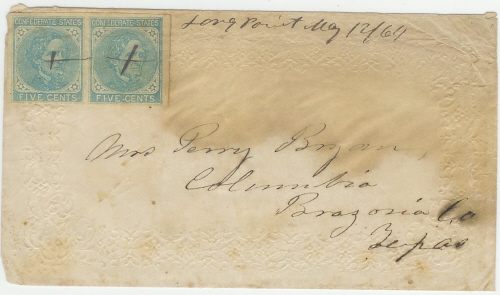 CONFEDERATE STATES CONFEDERATE STATES
FIVE CENTS FIVE CENTS
Long Point May 12/64
Mrs Perry Bryan,
Columbia
Brazoria Co
Texas